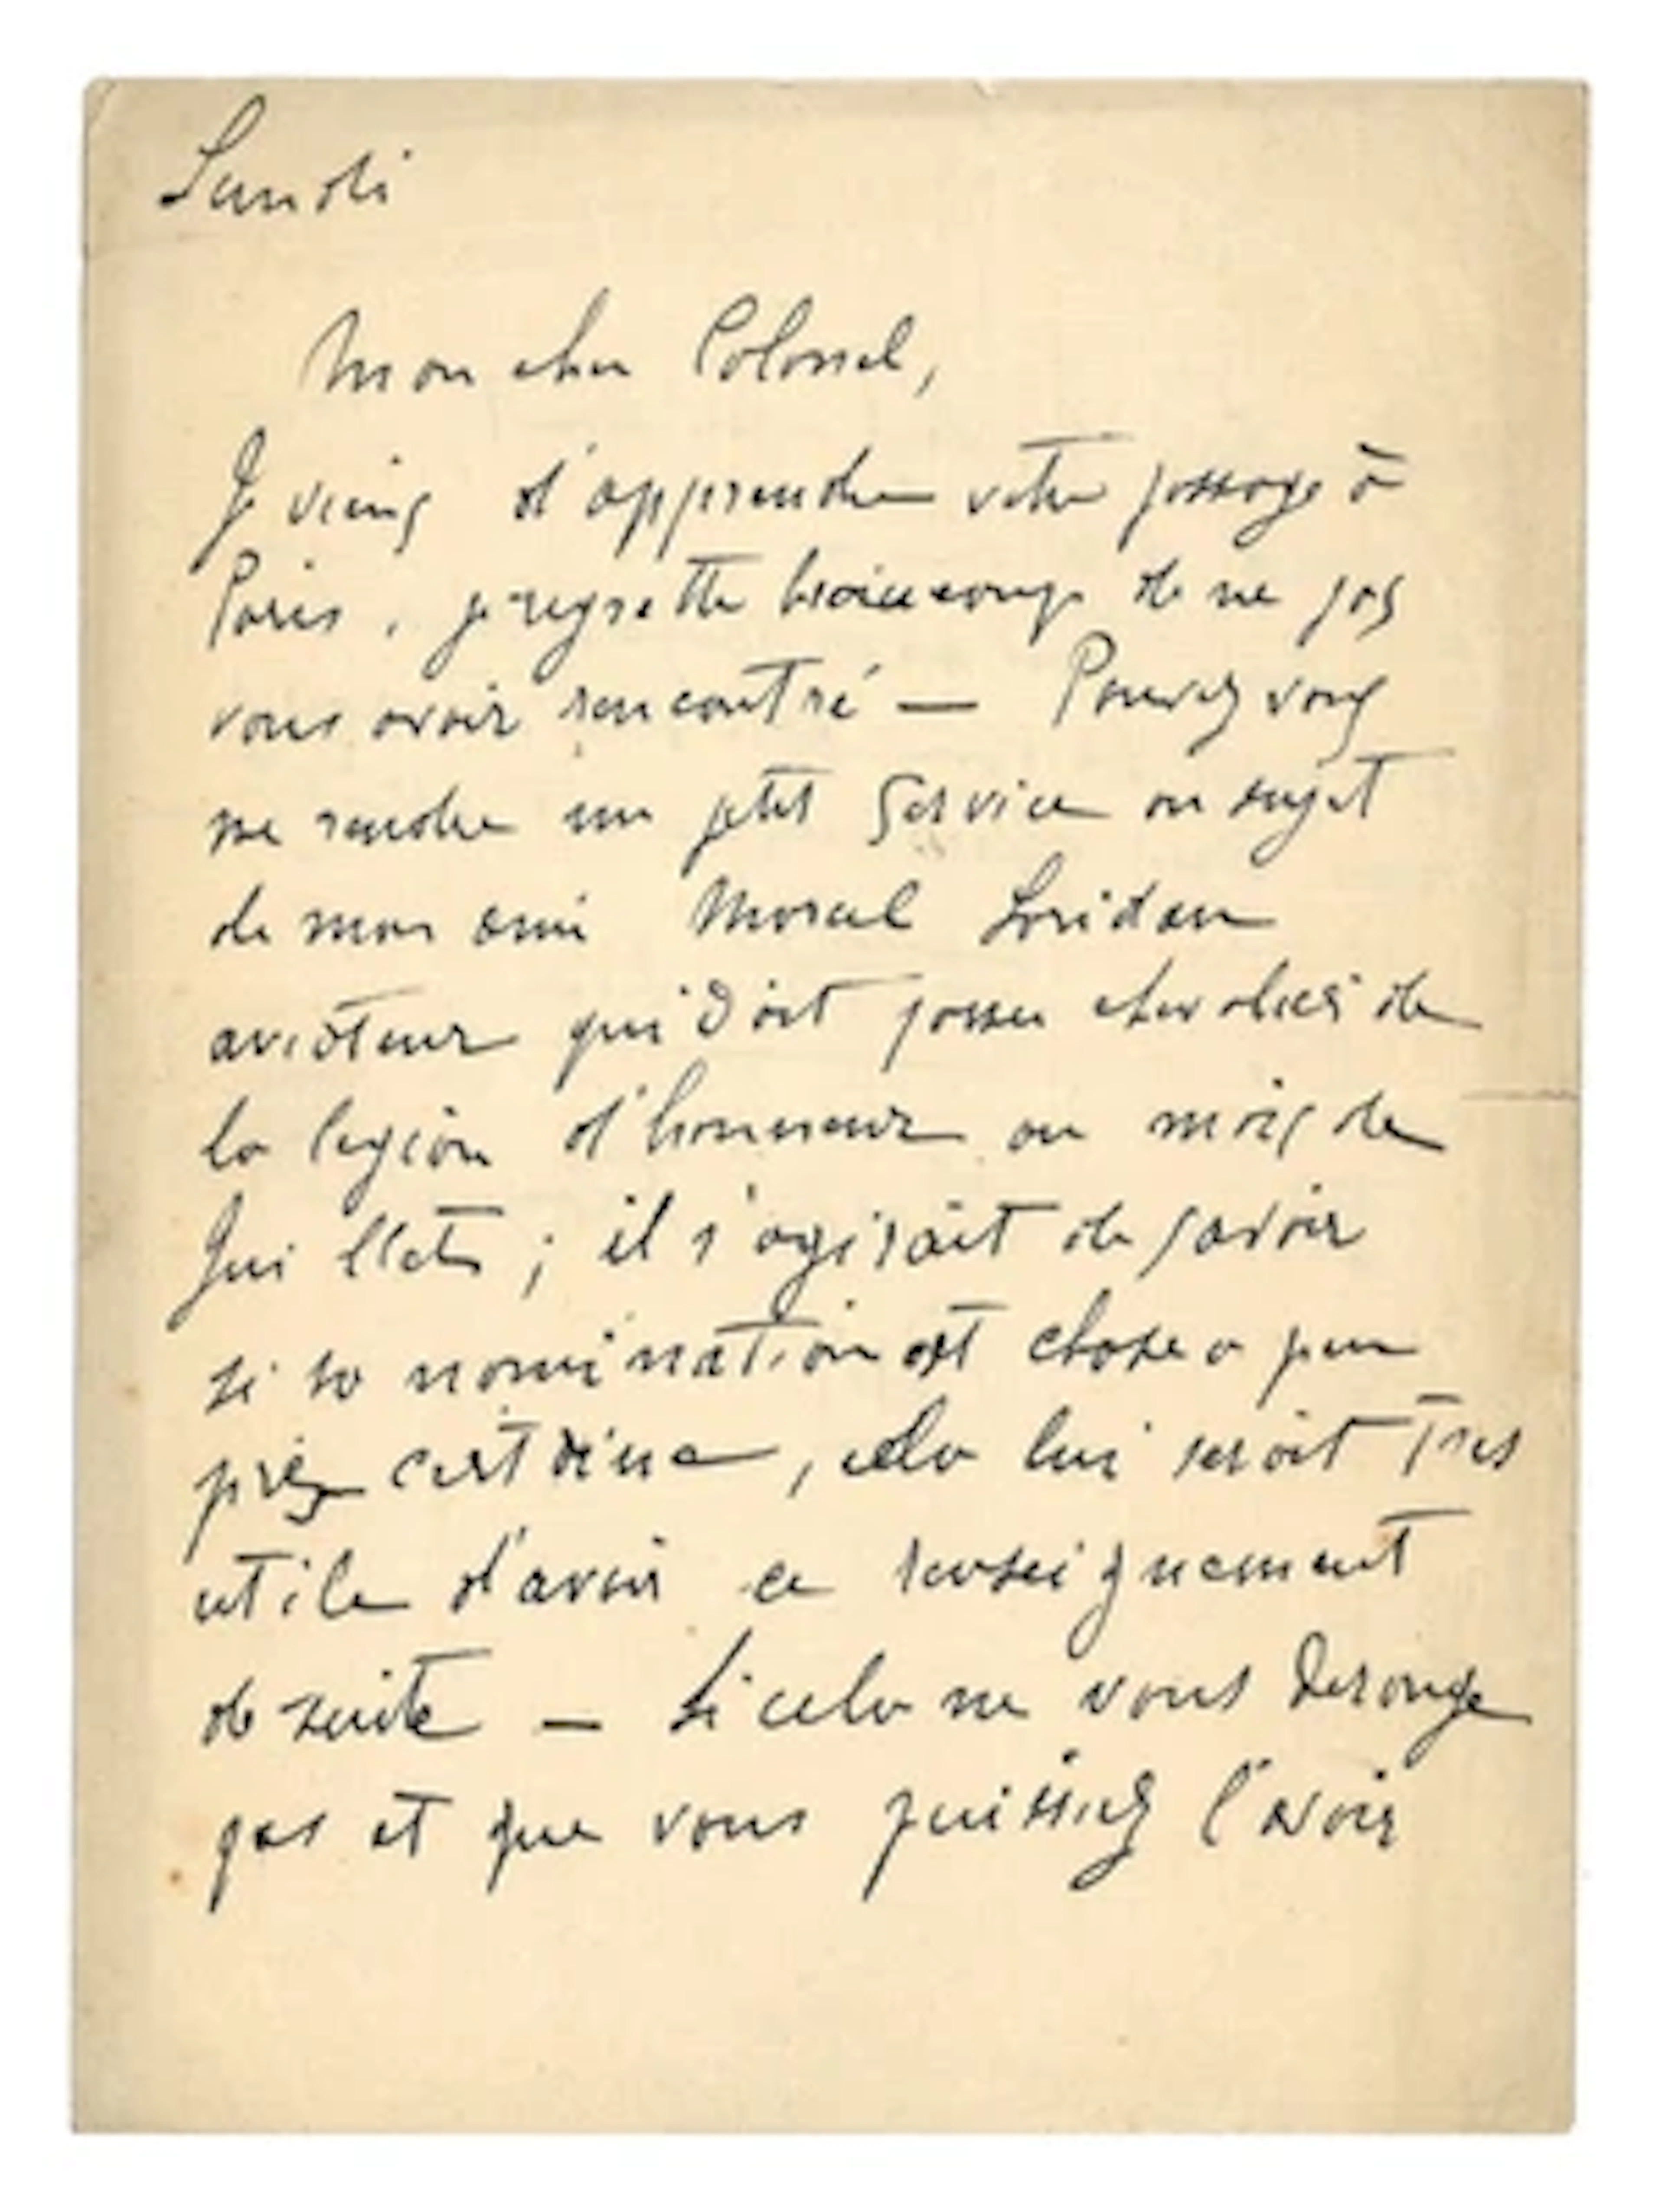 Lundi
Mon cher Colonel,
Je viens d'apprendre votre passage à
Paris, je regrette beaucoup de ne pas
vous avoir rencontré — Pouvez vous
me rendre un petit service au sujet
de mon ami Marcel Loridan
aviateur qui doit passer chevalier de
la legion d'honneur au mois de
Juillet ; il s'agirait de savoir
si sa nomination est chose a peu
près certaine, cela lui serait tres
utile d'avoir ce renseignement
de suite — Si cela ne vous derange
pas et que vous puissiez l'avoir